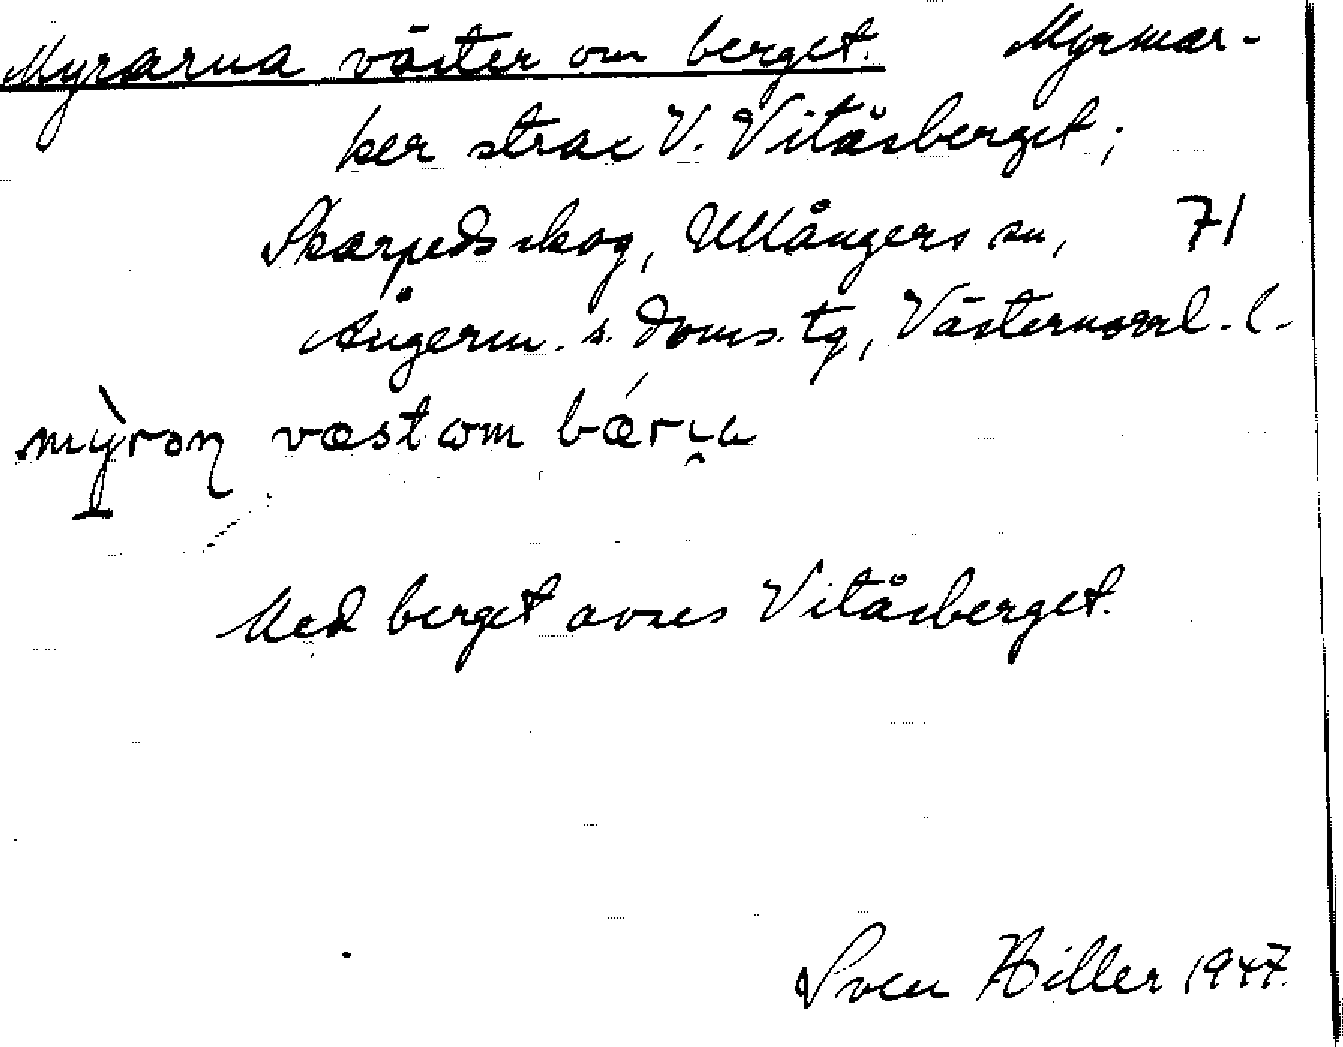 Myrarna väster om berget. Myrmar-
ker strax V. Vitåsberget;
Skarpedsskog, Ullångers sn, 71
Ångerm. s. doms. tg, Västernorrl. l.
mỳrɔn væst om bǽrı̯a
Med berget avses Vitåsberget.
Sven Hiller 1947.